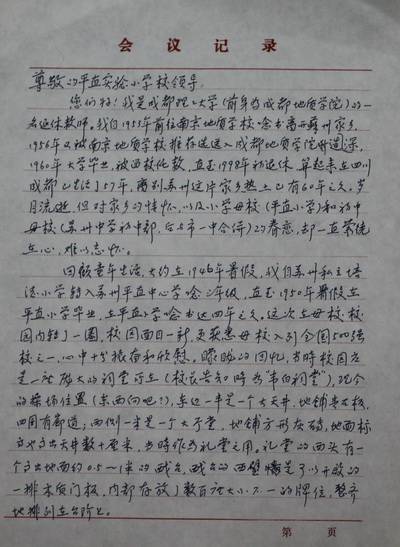 会议记录
尊敬的平直实验小学校领导:
您们好!我是成都理工大学(前身为成都地质学院)的一
名退休教师。我自1953年前往南京地质学校念书离开苏州家乡,
1956年又被南京地质学校推荐选送入成都地质学院
1960年大学毕业,被留校任教,直至1998年初退休。算起来在四川
成都已生活了57年,离别苏州这片家乡热土已有60年之久。岁
月流逝,但对家乡的情怀,以及小学母校(平直小学)和初中
母校(苏州中学初中部,后与市一中合併)的眷恋,却一直萦绕
在心,难以忘怀。
回顾童年生活,大约在1946年暑假,我自苏州私立培
小学转入苏州平直中心学念三年级,直至1950年暑假在平
直小学毕业,在平直小学念书达四年之久。这次在母校校
园内转了一圈,校园面目一新,更获悉母校入列全国500强
校之一,心中十分振奋和欣慰,朦胧的回忆,当时校园先
是一社庞大的祠堂所在(校长告知时为“韦白祠堂”),现今
的操场位置(东西向吧?),东边一半是一个大天井,地铺青石板,
四周有廊道;西侧一半是一个大厅堂,地铺方形灰砖,地面标
高高出天井数十厘米,当时作为礼堂之用。礼堂的西头有一
个高出地面约0.5~1米的戏台,戏台的西壁墙是可以开啟的
一排木质门板,内部存放了数百块大小不一的牌位,整齐
地排列在台阶上。
第 页